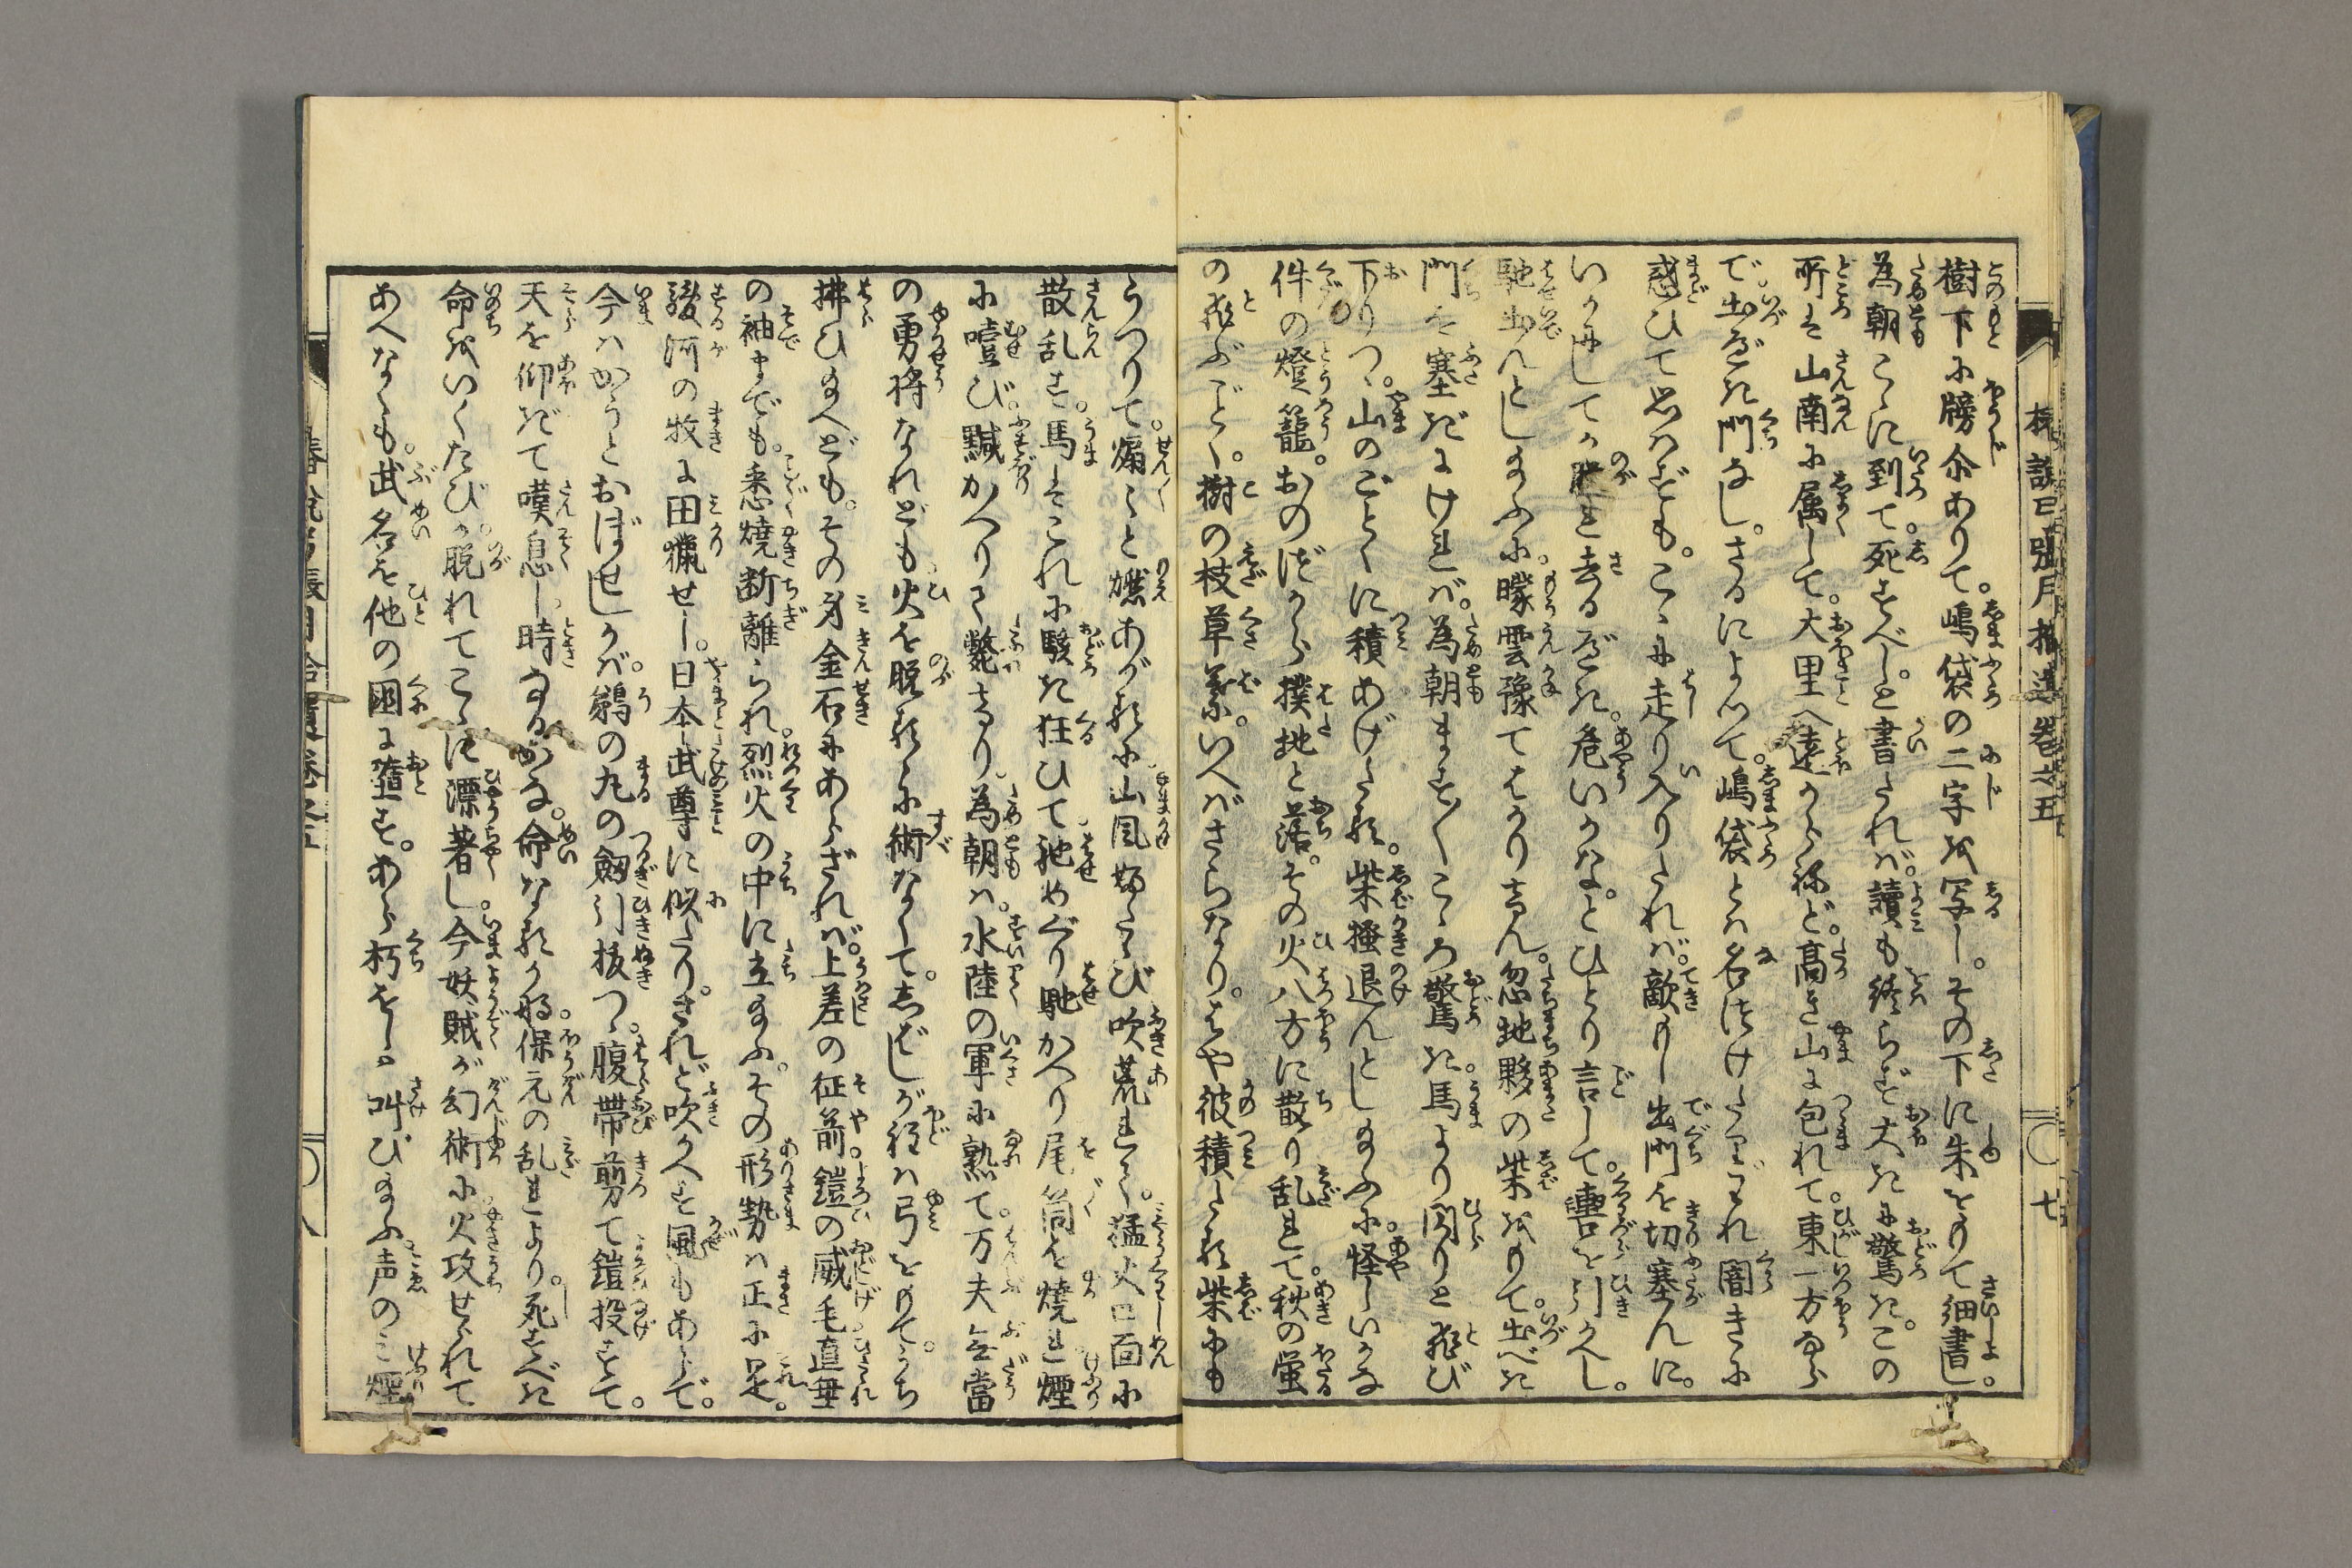 樹下に牓尒ありて。嶋袋の二字を写し。その下に朱をもて細書し。
為朝こゝに到て死すべし。と書たれば。讀も終らず大きに驚き。この
所は山南に属して。大里へ遠からねど。髙き山に包れて。東一方ならで
出べき門なし。さるによつて。嶋袋とは名づけたりけれ闇きに
惑ひて思はずも。こゝに走り入りたれば。敵もし出門を切塞んに。
いかにしてか脱を去るべき。危いかな。とひとり言して。轡を引かへし。
馳出んとし給ふに。曚雲豫てはかりけん。忽地夥の柴をもて。出べき
門を塞ぎにければ。為朝ます〳〵こゝろ驚き。馬より閃りと飛び
下りつゝ。山のごとくに積あげたる。柴掻退んとし給ふに。怪しいかな
件の燈籠。おのづから撲地と落。その火八方に散り乱れて。秋の螢
の飛ぶごとく。樹の枝草葉。いへばさらなり。はや彼積たる柴にも
うつりて。煽々と燃あがるに。山風嫐たび吹荒れて。猛火四面に
散乱す。馬はこれに駭き狂ひて。馳めぐり馳かへり尾筒を燒れ煙
に噎び。黬かへりて斃けり。為朝は。水陸の軍に熟て。万夫無當
の勇将なれども火を脱るゝに術なくて。しばしが程は弓をもて。うち
拂ひ給へども。その身金石にあらざれば。上差の征箭。鎧の威毛直垂
の袖までも。悉燒断離られ。烈火の中に立給ふ。その形勢は正に是。
駿河の牧に田猟せし。日本武尊に似たり。されど吹かへす風もあらで。
今はかうとおぼせしかば。鵜の丸の劔引抜つゝ。腹帯剪て鎧投すて。
天を仰ぎて嘆息し。時なるかな。命なるかな。保元の乱れより。死すべき
命をいくたびか。脱れてこゝに漂著し。今妖賊が幻術に火攻せられて
あへなくも。武名を他の國に墮す。あら朽をし。と叫び給ふ声のミ煙